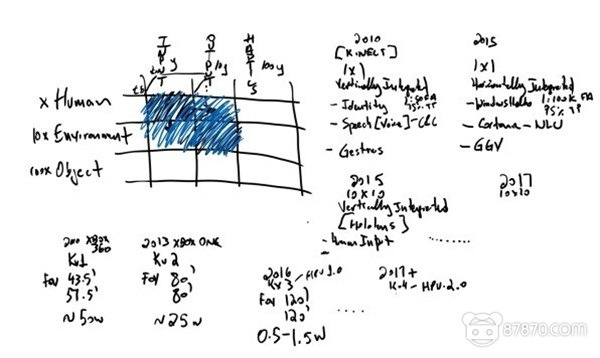 INPUT
OUTPUT
HAPTICS
y
10y
100y
x Human
10x Environment
100x Object
2010
[KINECT]
1x1
Vertically Integrated
- Identity
- Speech [Voice] - C&C
- Gestres
2015
1x1
Horizontally Integrated
- Windows Hello 1:100K FA
95% TP
- Cortana - NLU
- GGV
2015
10x10
Vertically Integrated
[Hololens]
- Human Input
........
2017
10x10
XBOX
360
Kv1
Fov 43.5'
57.5'
~50w
2013 XBOX ONE
Kv2
Fov 80'
80'
~25w
2016
Kv3 - HPU 1.0
Fov 120'
120'
0.5-1.5W
2017+
K-4 - HPU-2.0
....
87870.com